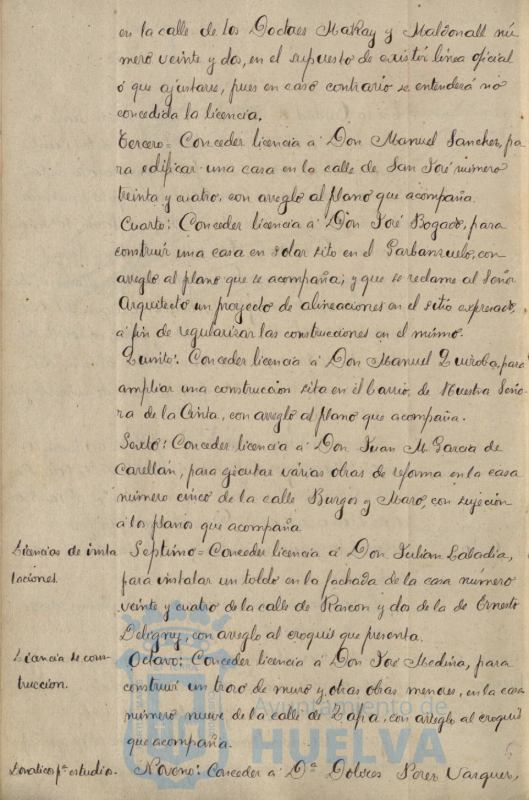 en la calle de los Doctores MaKay y Maldonall nú-
mero veinte y dos, en el supuesto de existir línea oficial
ó que ajustarse, pues en caso contrario se entenderá no
concedida la licencia.
Tercero= Conceder licencia á Don Manuel Sanchez, pa
ra edificar una casa en la calle de San José número
treinta y cuatro, con areglo al plano que acompaña.
Cuarto: Conceder licencia á Don José Bogado, para
construir una casa en solar sito en el Garbanzuelo, con
areglo al plano que se acompaña; y que se reclame al Señor
Arquitecto un proyecto de alineaciones en el sitio expresado,
á fin de regularizar las construcciones en el mismo.
Quinto: Conceder licencia á Don Manuel Quiroba, para
ampliar una construccion sita en el barrio, de Nuestra Seño-
ra de la Cinta, con areglo al plano que acompaña.
Sexto: Conceder licencia á Don Juan M. Garcia de
Carellán, para ejecutar várias obras de reforma en la casa
número cinco de la calle Burgos y Maro, con sujeción
á los planos que acompaña
Licencias de insta Septimo= Conceder licencia á Don Julian Labadia,
laciones. para instalar un toldo en la fachada de la casa número
veinte y cuatro de la calle de Rascon y dos de la de Ernesto
Deligny, con areglo al croquis que presenta.
Licencia de cons- Octavo: Conceder licencia á Don José Medina, para
truccion. construir un trozo de muro y otras obras menores, en la casa
número nueve de la calle de Tapia, con areglo al croquis
que acompaña.
Donativo pª estudio. Noveno: Conceder á Dª Dolores Perez Vazquez,
Ayuntamiento de
HUELVA